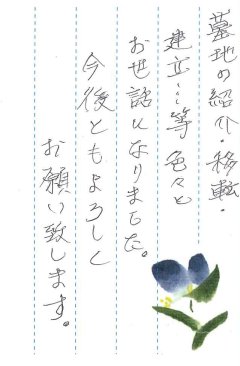 墓地の紹介・移転・
建立…等 色々と
お世話になりました。
今後ともよろしく
お願い致します。